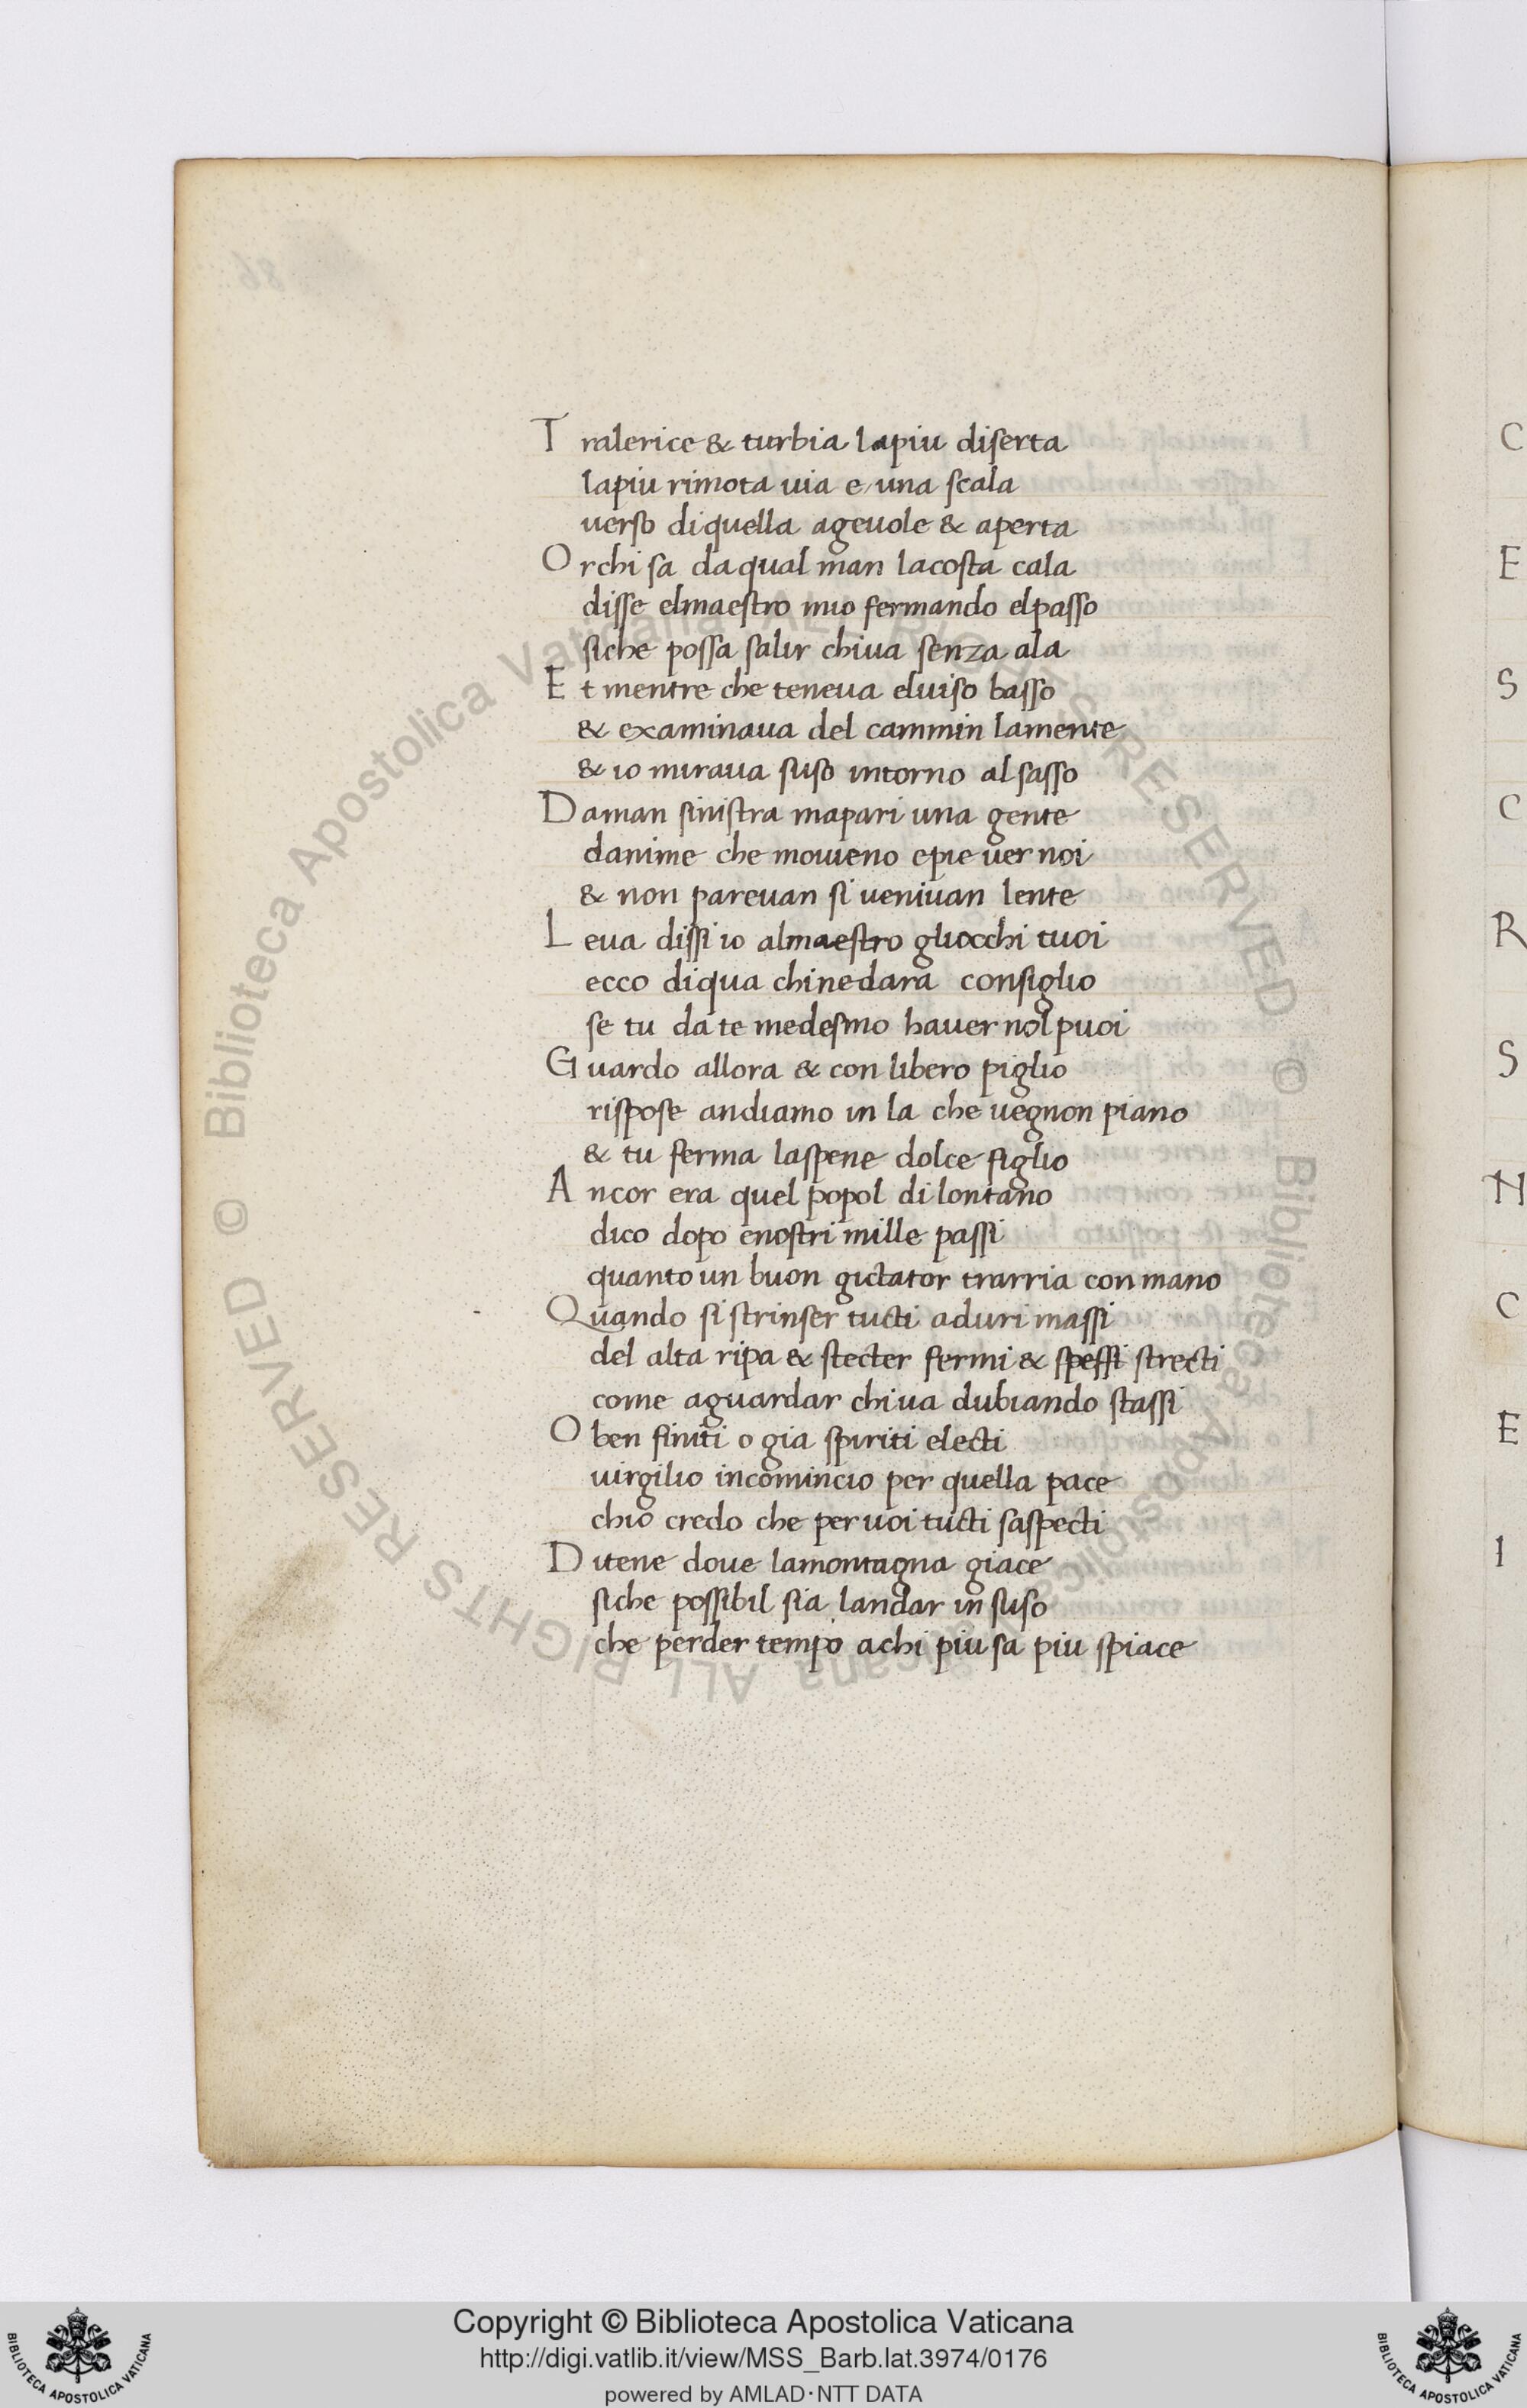 T ralerice & turbia lapiu diserta
lapiu rimota uia e una scala
uerso diquella ageuole & aperta
O rchi sa daqual man lacosta cala
disse elmaestro mio fermando elpasso
siche possa salir chiua senza ala
E t mentre che teneua eluiso basso
& examinaua del cammin lamente
& io miraua suso intorno al sasso
D aman sinistra mapari una gente
danime che mouieno epie uer noi
& non pareuan si ueniuan lente
L eua dissi io almaestro gliocchi tuoi
ecco diqua chinedara consiglio
se tu da te medesmo hauer nol puoi
G uardo allora & con libero piglio
rispose andiamo in la che uegnon piano
& tu ferma laspene dolce figlio
A ncor era quel popol di lontano
dico dopo enostri mille passi
quanto un buon gictator trarria con mano
Q uando si strinser tucti aduri massi
del alta ripa & stecter fermi & spessi strecti
come aguardar chi ua dubiando stassi
O ben finiti o gia spiriti electi
uirgilio incomincio per quella pace
chio credo che per uoi tucti saspecti
D itene doue lamontagna giace
siche possibil sia landar in suso
che perder tempo achi piu sa piu spiace
C
E
S
C
R
S
N
C
E
I
86
© Biblioteca Apostolica Vaticana ALL RIGHTS RESERVED © Biblioteca Apostolica Vaticana ALL RIGHTS RESERVED
Copyright © Biblioteca Apostolica Vaticana
http://digi.vatlib.it/view/MSS_Barb.lat.3974/0176
powered by AMLAD·NTT DATA
BIBLIOTECA APOSTOLICA VATICANA
BIBLIOTECA APOSTOLICA VATICANA